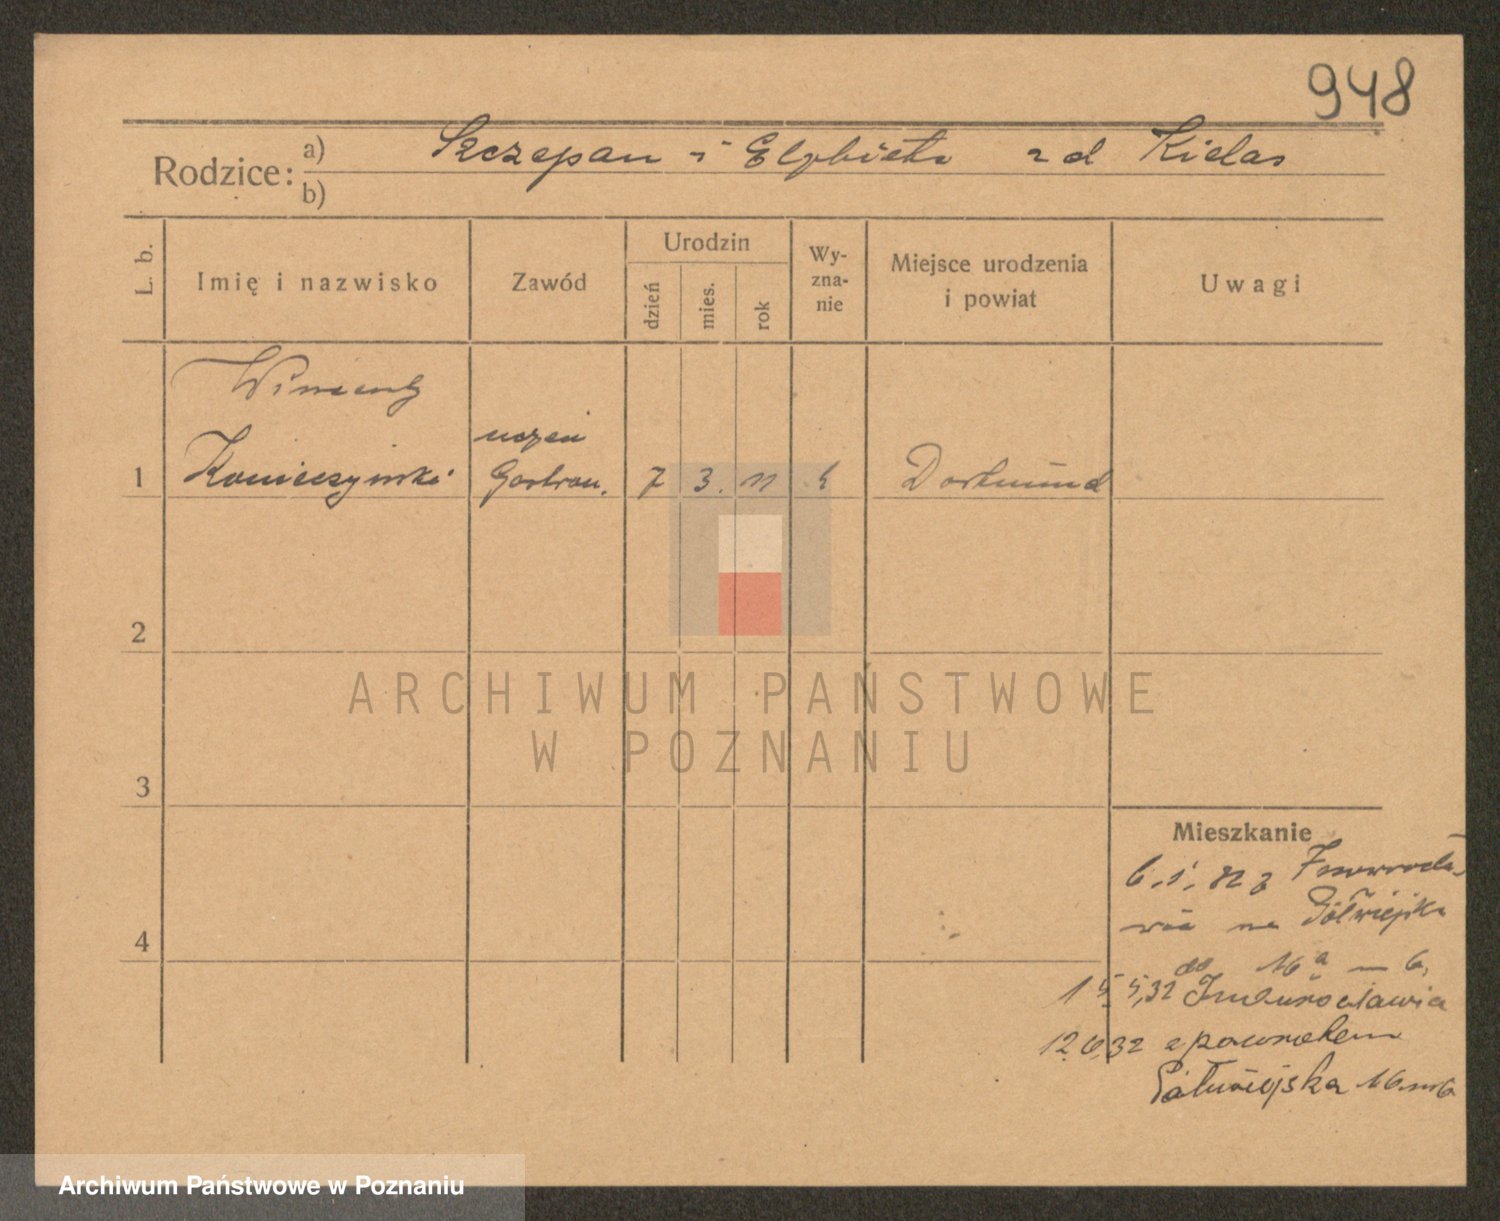 948
Rodzice: a) Szczepan i Elżbieta zd Kielas
b)
L. b.
Imię i nazwisko
Zawód
Urodzin
dzień
mies.
rok
Wy-
zna-
nie
Miejsce urodzenia
i powiat
Uwagi
Wincenty
uczeń
1 Konieczyński Gastron. 7 3. 11 k Dortmund
2
ARCHIWUM PAŃSTWOWE
W POZNANIU
3
Mieszkanie
6.1.32 z Inowrocła-
wia na Półwiejska
16a — 6,
15.5,32 do Inowrocławia
12.6,32 z powrotem
Półwiejska 16 m 6
4
Archiwum Państwowe w Poznaniu